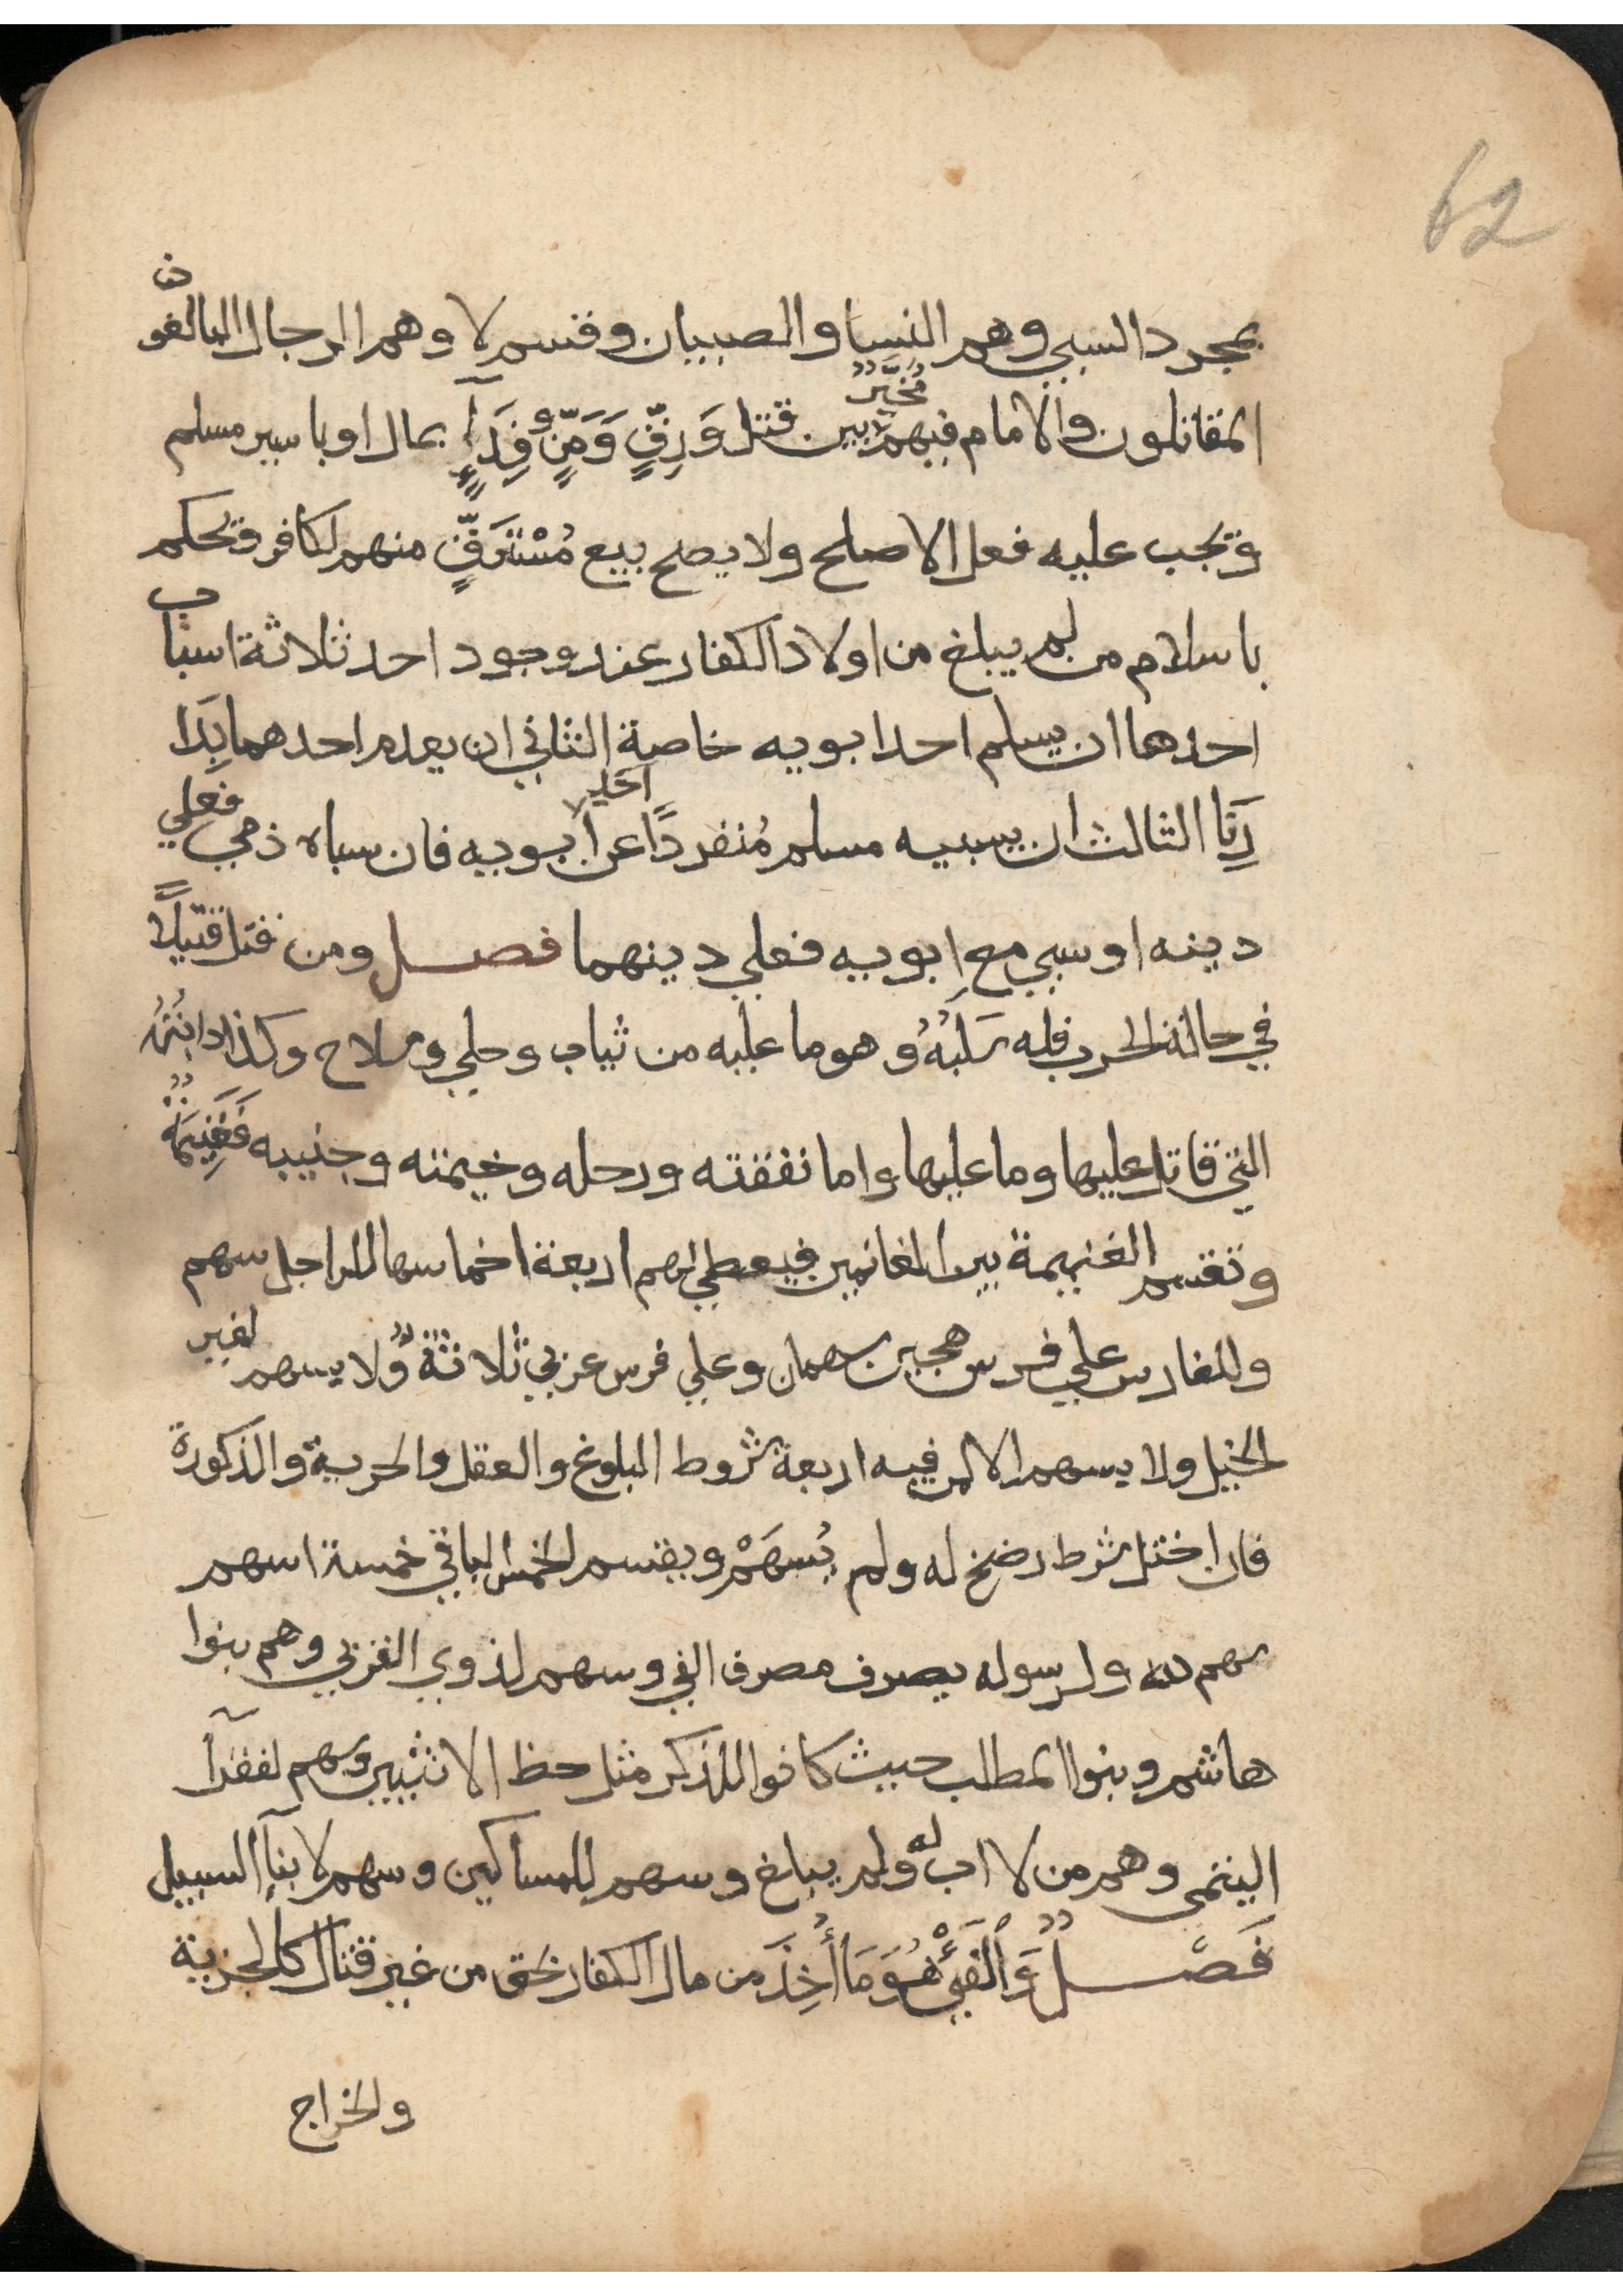 62
بمجرد السبي وهم النسا والصبيان وقسم لا وهم الرجال البالغون
المقاتلون والامام فيهم مُخَيَّرٌ بين قتل وَرِقٍّ وَمَنٍّ وفِدَآءٍ بمال او باسير مسلم
ويجب عليه فعل الاصلح ولا يصح بيع مُسْتَرَقٍّ منهم لكافر ويحكم
باسلام من لم يبلغ من اولاد الكفار عند وجود احد ثلاثة اسباب
احدها ان يسلم احد ابويه خاصة الثاني ان يعدم احدهما بِدَا
رِنَا الثالث ان يسبيه مسلم مُنفردًا عن احد ابويه فان سباه ذمي فعلي
دينه او سبي مع ابويه فعلي دينهما فصل ومن قتل قتيلًا
في حالة الحرب فله سَلَبُهُ وهو ما عليه من ثياب وحلي وسلاح وكذا دابتُهُ
التي قاتل عليها وما عليها واما نفقته ورحله وخيمته وجنيبه فَغَنِيمَةٌ
وتقسم الغنيمة بين الغانمين فيعطي لهم اربعة اخماسها للراجل سهم
وللفارس علي فرس هجين سهمان وعلي فرس عربي ثلاثةٌ ولا يسهم لغير
الخيل ولا يسهم الا لمن فيه اربعة شروط البلوغ والعقل والحرية والذكورة
فان اختل شرط رضخ له ولم يُسهَمْ ويقسم الخمس الباقي خمسة اسهم
سهم لله ولرسوله يصرف مصرف الفي وسهم لذوي القربي وهم بنوا
هاشم وبنوا المطلب حيث كانوا للذكر مثل حظ الانثيين وسهم لفقرآ
اليتمى وهم من لا اب له ولم يبلغ وسهم للمساكين وسهم لابنآ السبيل
فَصْلٌ وَالْفَيْءُ هُوَ مَا أُخِذَ من مال الكفار بحق من غير قتال كالجزية
والخراج